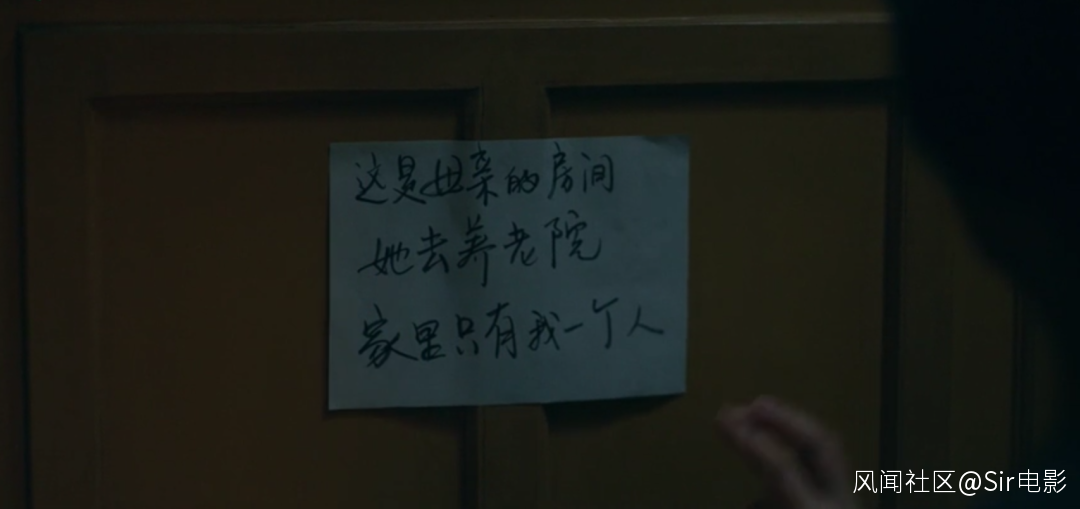 这是母亲的房间
她去养老院
家里只有我一个人
风闻社区@Sir电影